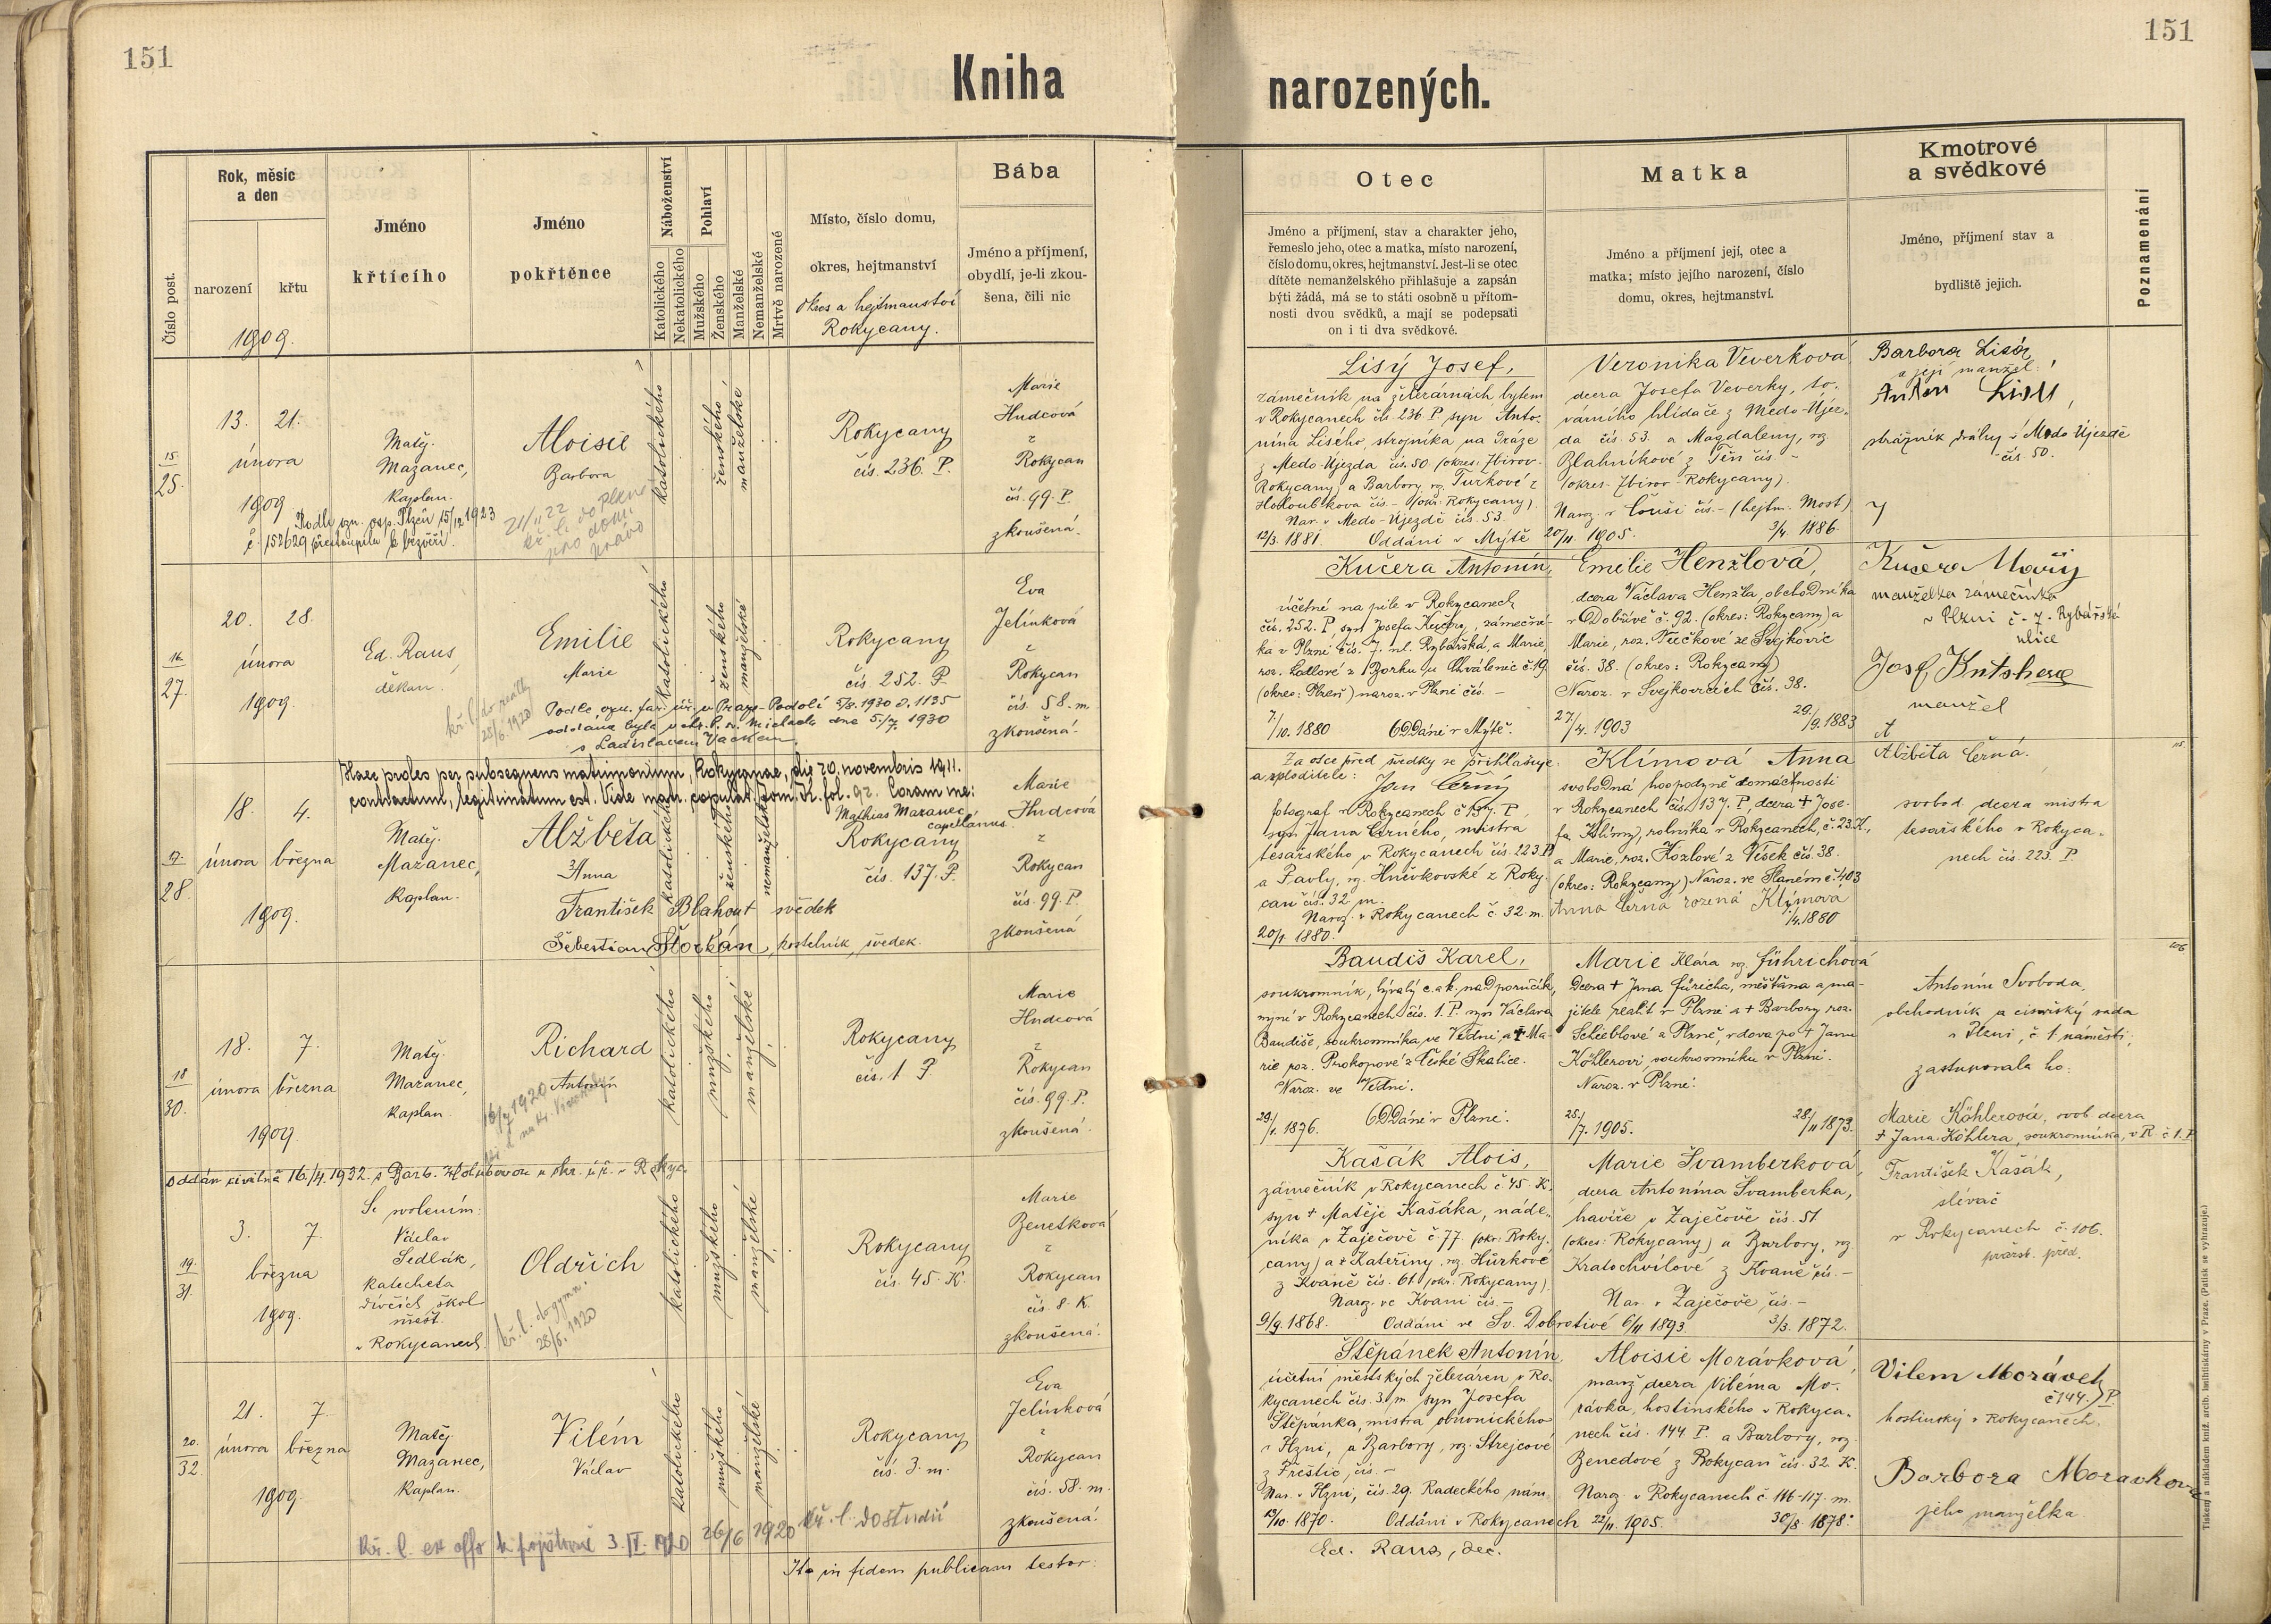 151
151
Kniha
narozených.
Číslo post.
Rok, měsíc
a den
narození
křtu
1909.
Jméno
křtícího
Jméno
pokřtěnce
Náboženství
Katolického
Nekatolického
Pohlaví
Mužského
Ženského
Manželské
Nemanželské
Mrtvě narozené
Místo, číslo domu,
okres, hejtmanství
Okres a hejtmanství
Rokycany.
Bába
Jméno a příjmení,
obydlí, je-li zkou-
šena, čili nic
Otec
Jméno a příjmení, stav a charakter jeho,
řemeslo jeho, otec a matka, místo narození,
číslo domu, okres, hejtmanství. Jest-li se otec
dítěte nemanželského přihlašuje a zapsán
býti žádá, má se to státi osobně u přítom-
nosti dvou svědků, a mají se podepsati
on i ti dva svědkové.
Matka
Jméno a příjmení její, otec a
matka; místo jejího narození, číslo
domu, okres, hejtmanství.
Kmotrové
a svědkové
Jméno, příjmení stav a
bydliště jejich.
Poznamenání
15.
25.
13. 21.
února
1909
Matěj
Mazanec,
kaplan.
Aloisie
Barbora
katolického
ženského
manželské
Rokycany
čís. 236. P.
Marie
Hudcová
z
Rokycan
čís. 99. P.
zkoušená.
Podle ozn. osp. Plzeň 15/12 1923
č. 152629 přestoupila k bezvěří.
21/11 22
kř. l.
pro domí
právo
Lisý Josef,
zámečník na železárnách bytem
v Rokycanech čís. 236. P. syn Anto-
nína Lisého, strojníka na dráze
z Medo-Újezda čís. 50. (okres: Zbirov-
Rokycany) a Barbory, roz. Turkové z
Holoubkova čís. - (okr: Rokycany).
Nar. v Medo-Újezdě čís. 53.
12/3. 1881. Oddáni v Mýtě 20/11. 1905.
Veronika Veverková
dcera Josefa Veverky, to-
várního hlídače z Medo-Újez-
da čís. 53. a Magdaleny, roz.
Blahníkové z Těň čís. -
(okres- Zbirov Rokycany).
Naroz. v Čouši čís. - (hejtm. Most)
3/4. 1886.
Barbora Lisá,
a její manžel
Anton Lisý,
strážník dráhy v Medo Újezdě
čís. 50.
16.
27.
20. 28.
února
1909.
Ed. Raus,
děkan.
Emilie
Marie
katolického
ženského
manželské
Rokycany
čís. 252. P.
Eva
Jelínková
z
Rokycan
čís. 58. m.
zkoušená.
kř. l. do reálky
25/6. 1920
Podle ozn. far. úř. v Praze-Podolí 5/8. 1930 č. 1135
oddána byla v chr. P. sv. Michala dne 5./7. 1930
s Ladislavem Vackem.
Kučera Antonín,
účetní na pile v Rokycanech
čís. 252. P., syn Josefa Kučery, zámeční-
ka v Plzni čís. 7. ul. Rybářská, a Marie,
roz. Lodlové z Borku u Chválenic č. 19.
(okres: Plzeň) naroz. v Plzni čís. -
7/10. 1880 Oddáni v Mýtě. 27/4. 1903
Emilie Henžlová,
dcera Václava Henžla, obchodníka
v Dobřívě č. 92. (okres: Rokycany) a
Marie, roz. Tučkové ze Svejkovic
čís. 38. (okres: Rokycany)
Naroz. v Svejkovicích čís. 38.
29./9. 1883
Kučera Marij
manželka zámečníka
v Plzni č. 7. Rybářská
ulice
Josef Kutschera
manžel
17.
28.
18. 4.
února března
1909.
Haec proles per subsequens matrimonium, Rokycanae, die 20. novembris 1911.
contractum, legitimatum est. Vide matr. copulat. tom. K. fol. 92. Coram me:
Mathias Mazanec,
capellanus.
Matěj
Mazanec,
kaplan.
Alžběta
Anna
katolického
ženského
nemanželské
Rokycany
čís. 137. P.
Marie
Hudcová
z
Rokycan
čís. 99. P.
zkoušená
František Blahout svědek
Šebestian Štorkán, kostelník, svědek.
Za otce před svědky se přihlašuje
a zploditele: Jan Černý
fotograf v Rokycanech č. 137. P.,
syn Jana Černého, mistra
tesařského v Rokycanech čís. 223. P.
a Pavly, roz. Hněvkovské z Roky-
can čís. 32 m.
Naroz. v Rokycanech č. 32. m.
20/1. 1880.
Klímová Anna
svobodná hospodyně domácnosti
v Rokycanech čís. 137. P., dcera + Jose-
fa Klímy, rolníka v Rokycanech, č. 23. K.,
a Marie, roz. Kozlové z Vísek čís. 38.
(okres: Rokycany) Naroz. ve Slaném č. 403
Anna Černá rozená Klímová
/4. 1880
Alžběta Černá.
svobod. dcera mistra
tesařského v Rokyca-
nech čís. 223. P.
18
30.
18. 7.
února března
1909
Matěj
Mazanec,
kaplan.
Richard
Antonín
katolického
mužského
manželské
Rokycany
čís. 1 P
Marie
Hudcová
z
Rokycan
čís. 99. P.
zkoušená.
Oddán civilně 16./4. 1932. s Barb. Holubovou u okr. úř. v Rokyc.
Baudiš Karel,
soukromník, bývalý c. a k. nadporučík,
nyní v Rokycanech čís. 1. P. syn Václava
Baudiše, soukromníka ve Vídni, a + Ma-
rie roz. Prokopové z České Skalice.
Naroz. ve Vídni.
29./1. 1876. Oddáni v Plzni. 25./7. 1905.
Marie Klára roz. Führichová
Dcera + Jana Füricha, měšťana a ma-
jitele realit v Plzni a + Barbory roz.
Scheiblové z Plzně, vdova po + Janu
Köhlerovi, soukromníku v Plzni.
Naroz. v Plzni.
28/11 1873.
Antonín Svoboda,
obchodník a císařský rada
v Plzni, č. 1 náměstí,
zastupovala ho:
Marie Köhlerová, svob dcera
+ Jana Köhlera, soukromníka, v R. č. 1. P.
19.
31.
3. 7.
března
1909.
Se svolením:
Václav
Sedlák,
katecheta
dívčích škol
měšť.
v Rokycanech.
Oldřich
katolického
mužského
manželské
Rokycany
čís. 45. K.
Marie
Benetková
z
Rokycan
čís. 8. K.
zkoušená.
kř. l. do gymn.
28/6. 1920
Kašák Alois,
zámečník v Rokycanech č. 45. K.
syn + Matěje Kašáka, náde-
níka v Zaječově č. 77 (okr: Roky-
cany) a + Kateřiny, roz. Hůrkové
z Kvaně čís. 61 (okr. Rokycany).
Naroz. ve Kvani čís. -
9/9. 1868. Oddáni ve Sv. Dobrotivé 6/11 1893.
Marie Švamberková,
dcera Antonína Švamberka,
havíře v Zaječově čís. 51
(okres: Rokycany) a Barbory, roz.
Kratochvílové z Kvaně čís. -
Nar. v Zaječově čís. -
3/3. 1872.
František Kašák,
slévač
v Rokycanech č. 106.
20.
32.
21. 7.
února března
1909.
Matěj
Mazanec,
kaplan.
Vilém
Václav
katolického
mužského
manželské
Rokycany
čís. 3. m.
Eva
Jelínková
z
Rokycan
čís. 58. m.
zkoušená.
Kř. l. ex offo k pojištění 3. IV. 1920 26/6 1920 kř. l. do studií
Štěpánek Antonín,
účetní městských železáren v Ro-
kycanech čís. 3. m syn Josefa
Štěpánka, mistra obuvnického
v Plzni, a Barbory, roz. Strejcové
z Přeštic, čís. -
Nar. v Plzni, čís. 29. Radeckého nám.
13/10. 1870. Oddáni v Rokycanech 22/11. 1905.
Aloisie Morávková,
manž dcera Viléma Mo-
rávka, hostinského v Rokyca-
nech čís. 144. P. a Barbory, roz.
Benedové z Rokycan čís. 32. K.
Naroz. v Rokycanech č. 116-117. m.
30/8. 1878.
Vilem Morávek
č 144. P.
hostinský v Rokycanech.
Barbora Moravková
jeho manželka.
Ita in fidem publicam testor:
Ed. Raus, dec.
Tiskem a nákladem kníž. arcib. knihtiskárny v Praze. (Patisk se vyhrazuje.)